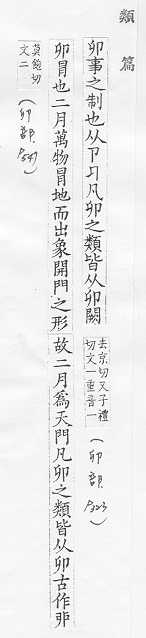 類篇
𠨍事之制也从卩𠨎凡𠨍之類皆从𠨍闕
去京切又子禮
切文一重音一
(卯部 P323)
卯冒也二月萬物冒地而出象開門之形故二月爲天門凡卯之類皆从卯古作丣
莫飽切
文二
(卯部 P547)